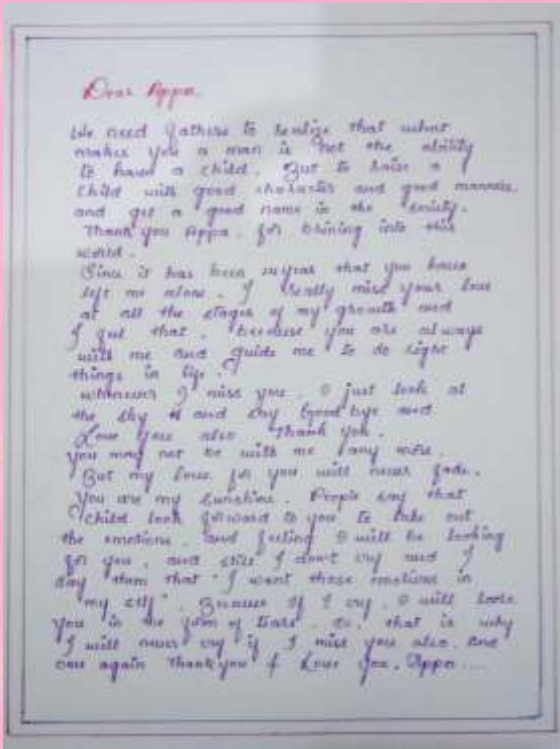 Dear Appa.
We need fathers to realize that what
makes you a man is not the ability
to have a child. But to raise a
child with good character and good manners.
and get a good name in the society.
Thank you Appa. for brining into this
world.
Since it has been year that you have
left me alone. I really miss your love
at all the stages of my growth and
I get that. because you are always
with me and guide me to do right
things in life.
whenever I miss you. I just look at
the sky and say Good bye and
Love you also Thank you.
you may not be with me any more.
But my love for you will never fade.
You are my sunshine. People say that
child look forward to you to take out
the emotions. and feeling I will be looking
for you. and still I don't cry and I
say them that "I want those emotions in
my self". Because If I cry. I will loose
you in the form of tears. So, that is why
I will never cry if I miss you also. and
once again Thank you & Love you. Appa....